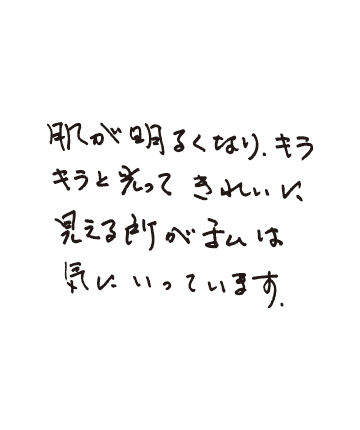 肌が明るくなり、キラ
キラと光ってきれいに
見える所が私は
気にいっています。